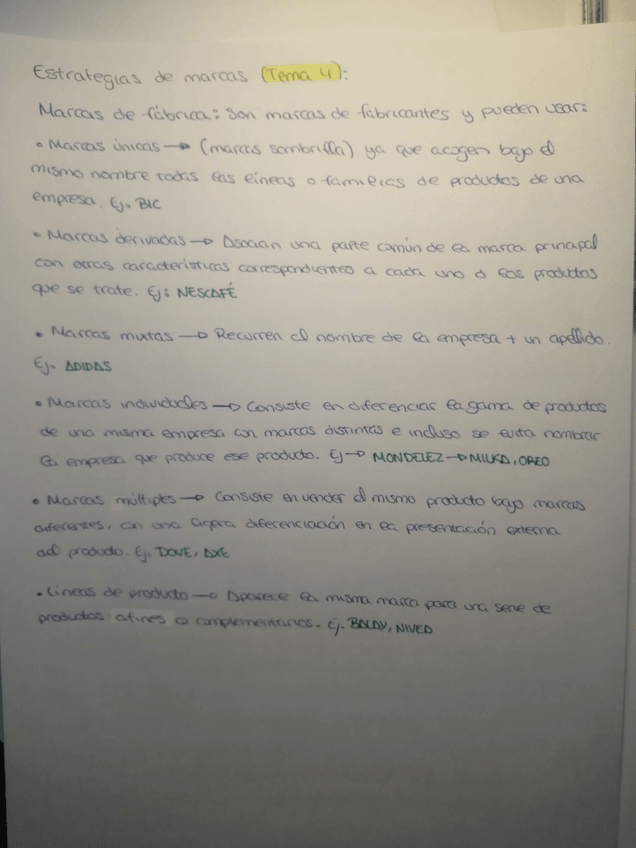 Estrategias de marcas (Tema 4):
Marcas de fábrica: Son marcas de fabricantes y pueden usar:
• Marcas únicas → (marcas sombrilla) ya que acogen bajo el
mismo nombre todas las líneas o familias de productos de una
empresa. Ej. BIC
• Marcas derivadas → Asocian una parte común de la marca principal
con otras características correspondientes a cada uno d los productos
que se trate. Ej: NESCAFÉ
• Marcas mixtas → Recurren al nombre de la empresa + un apellido.
Ej. ADIDAS
• Marcas individuales → Consiste en diferenciar la gama de productos
de una misma empresa con marcas distintas e incluso se evita nombrar
la empresa que produce ese producto. Ej → MONDELEZ → MILKA, OREO
• Marcas múltiples → Consiste en vender el mismo producto bajo marcas
diferentes, con una ligera diferenciación en la presentación externa
del producto. Ej. DOVE, AXE
• Líneas de producto → Aparece la misma marca para una serie de
productos afines o complementarios. Ej. BALAY, NIVEA